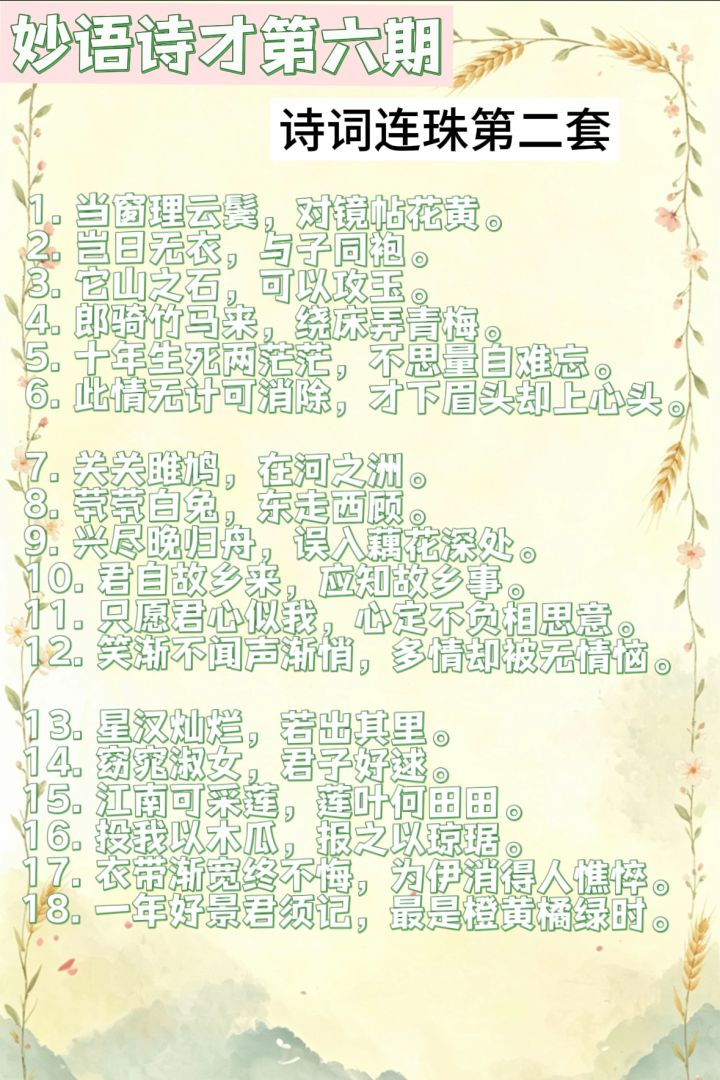 妙语诗才第六期
诗词连珠第二套
1. 当窗理云鬓，对镜帖花黄。
2. 岂曰无衣，与子同袍。
3. 它山之石，可以攻玉。
4. 郎骑竹马来，绕床弄青梅。
5. 十年生死两茫茫，不思量自难忘。
6. 此情无计可消除，才下眉头却上心头。
7. 关关雎鸠，在河之洲。
8. 茕茕白兔，东走西顾。
9. 兴尽晚归舟，误入藕花深处。
10. 君自故乡来，应知故乡事。
11. 只愿君心似我，心定不负相思意。
12. 笑渐不闻声渐悄，多情却被无情恼。
13. 星汉灿烂，若出其里。
14. 窈窕淑女，君子好逑。
15. 江南可采莲，莲叶何田田。
16. 投我以木瓜，报之以琼琚。
17. 衣带渐宽终不悔，为伊消得人憔悴。
18. 一年好景君须记，最是橙黄橘绿时。